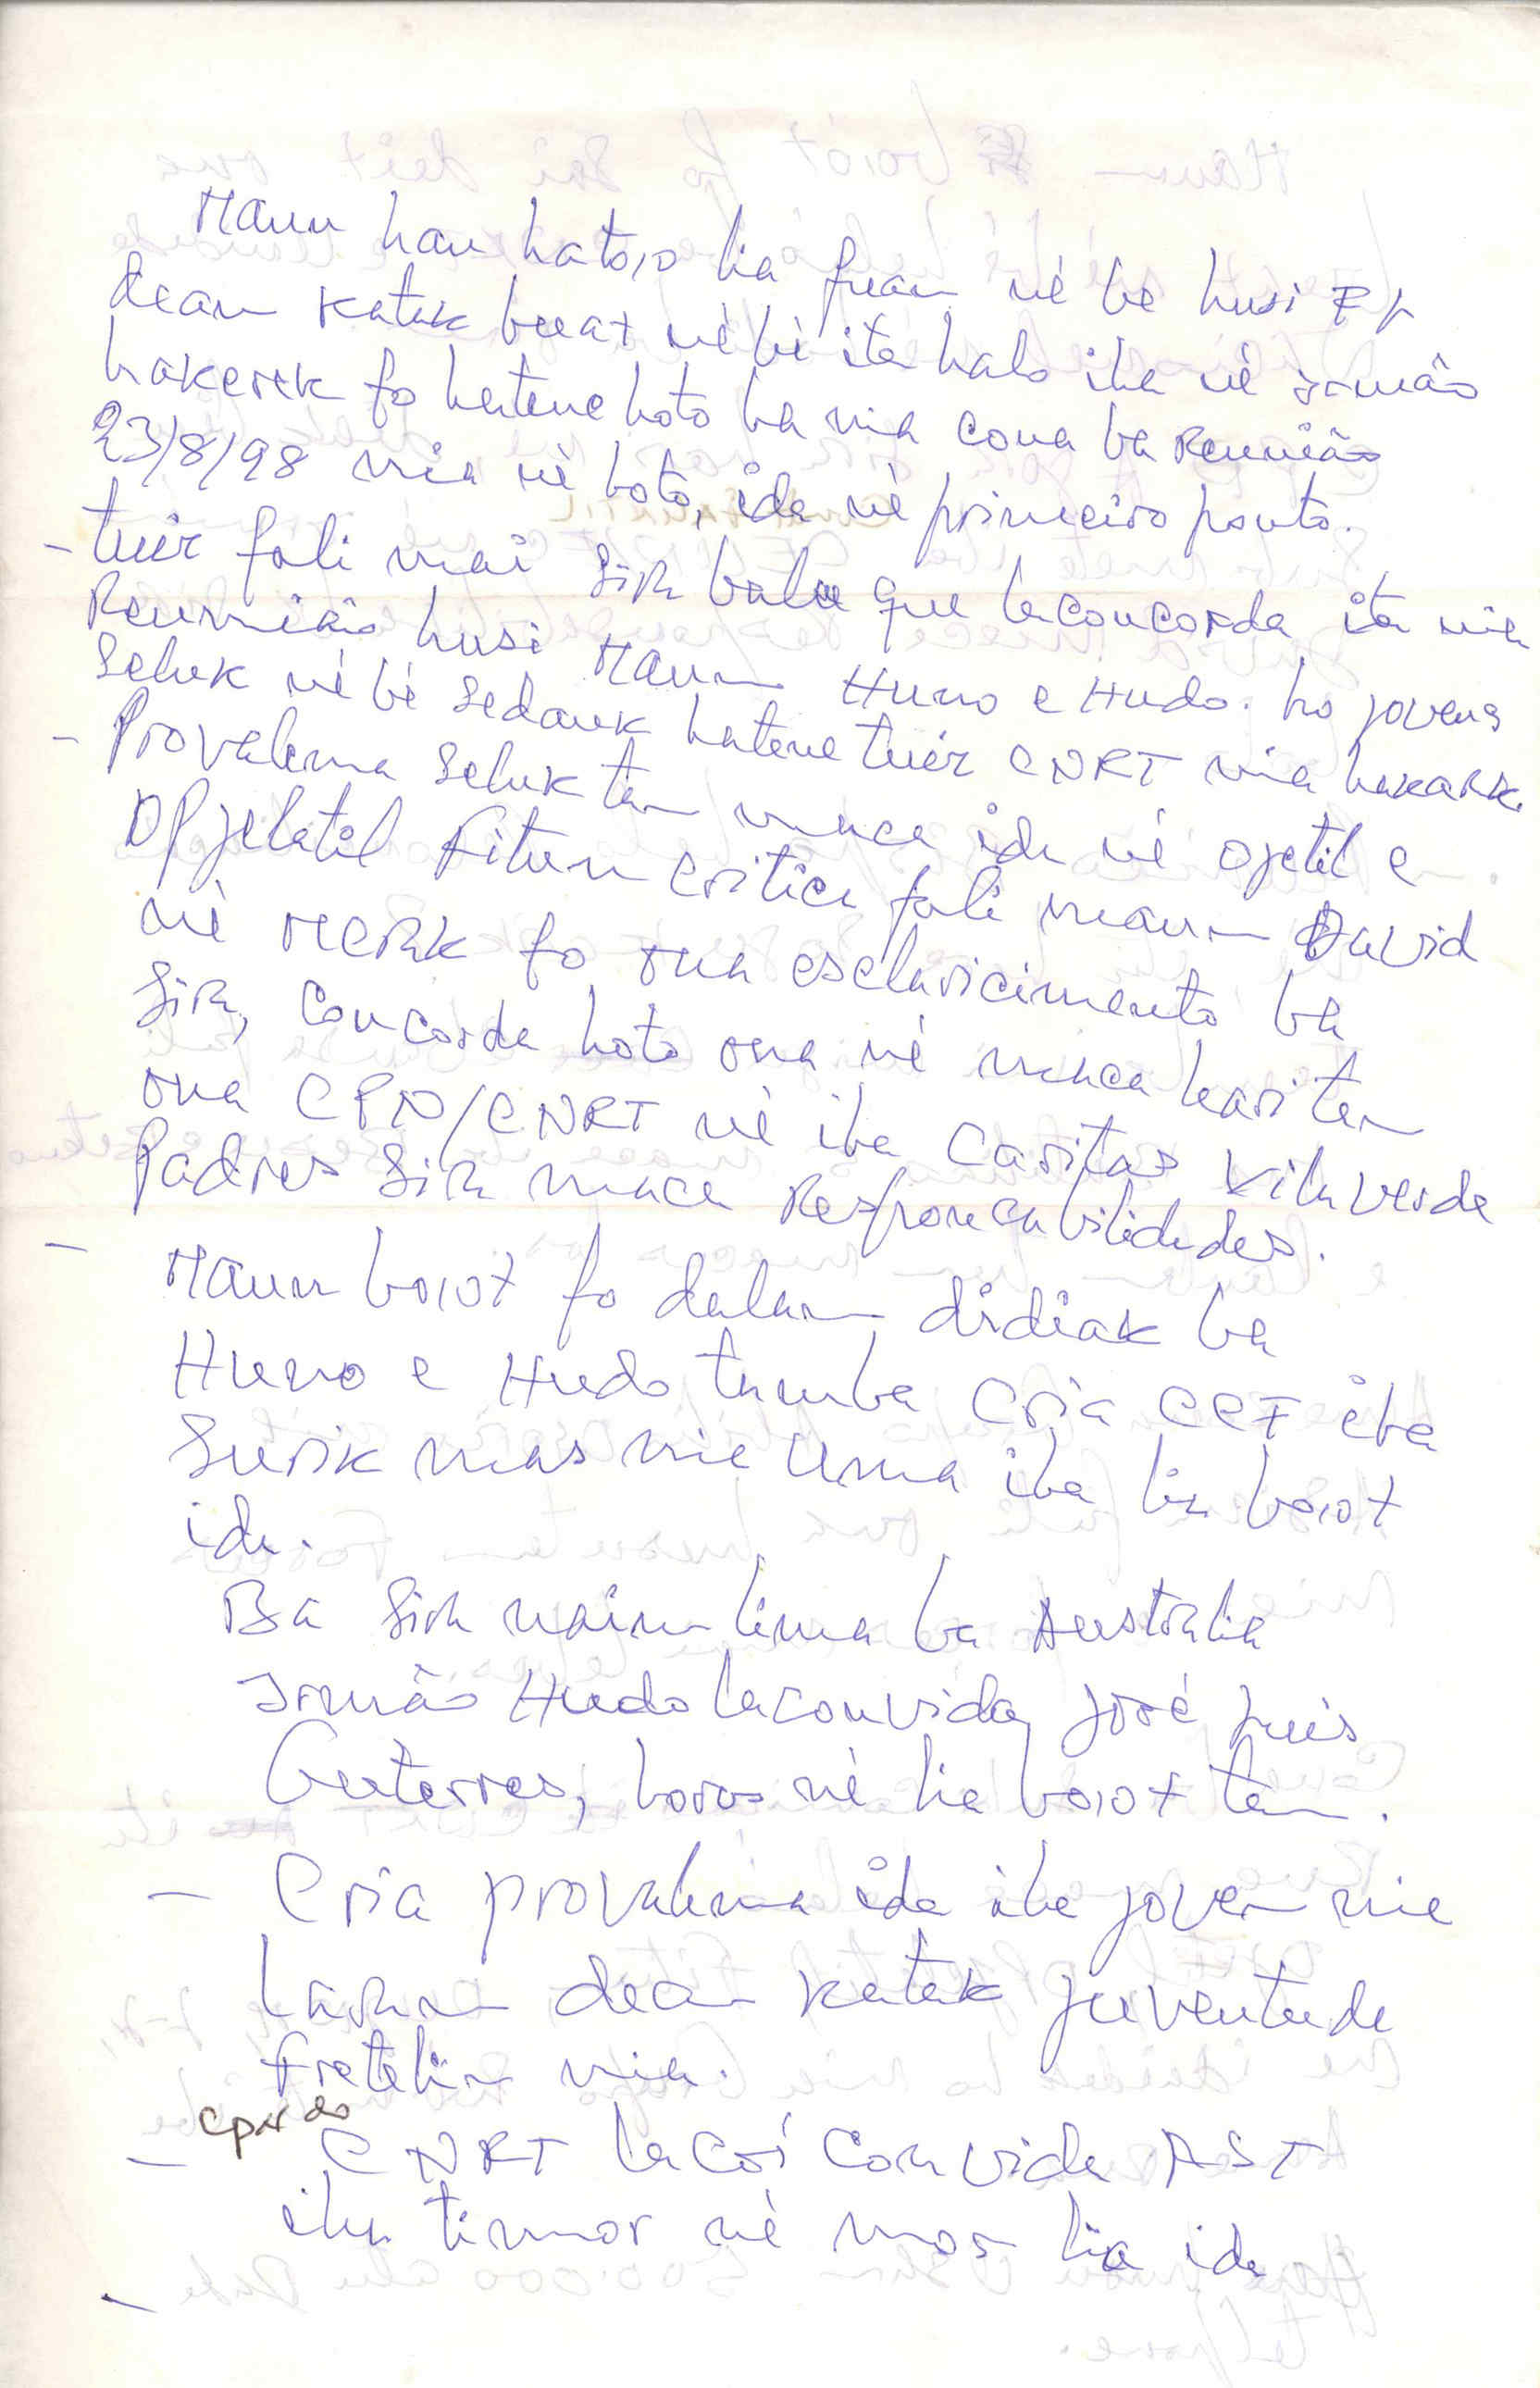 Maun hau hato,o lia fuan né be husi
dean katak buat né bé ita halo iha né irmão
hakerek fo hatene hoto ba nia cona ba Reunião
23/8/98 nia né hoto, ida né primeiro ponto.
- tuir fali mai sira balu que laconcorda ita nia
Reunião husi Maun Huno e Hudo. ho jovens
seluk né bé sedauk hatene tuir CNRT nia hakarak
- Provalema seluk tan maca ida né ojetil e
Opjelatil Fitun critica fali maun David
né merak fo ona esclaricimento ba
sira, Concorda hoto ona né maca hasi tan
ona CPN/CNRT né iha Caritas Vila verde
Padres sira maca Responcabilidades.
- Maun bo,ot fo dalan didiak ba
Huno e Hudo tamba Cria CCF iha
surik mas nia Uma iha lia bo,ot
ida.
Ba sira nain lima ba Australia
Irmão Hudo laconvida José Luis
Guterres, horas né lia bo,ot tan.
- Cria provalema ida iha joven nia
laran dean katak juventude
Fretelin nia.
- CPN do
CNRT lacoi Convida AST
iha timor né mos lia ida
-